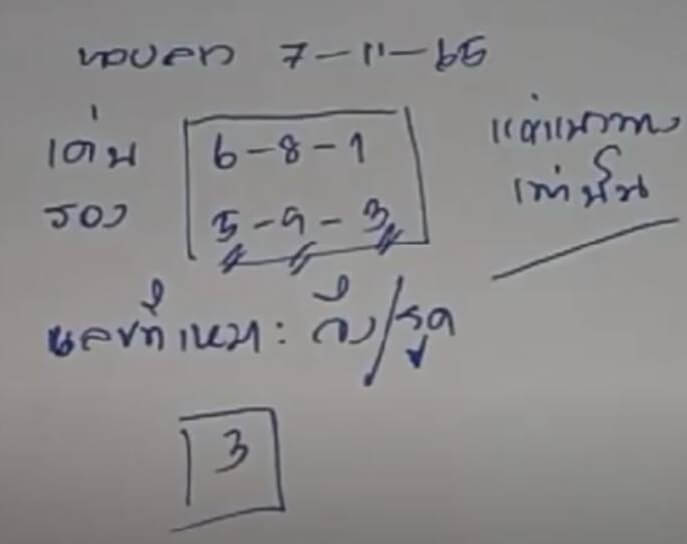 หวยลาว 7-11-65
เด่น 6-8-1
รอง 5-9-3
แค่แนวทาง
เท่านั้น
เลขที่เหมาะ: วิ่ง/รูด
3